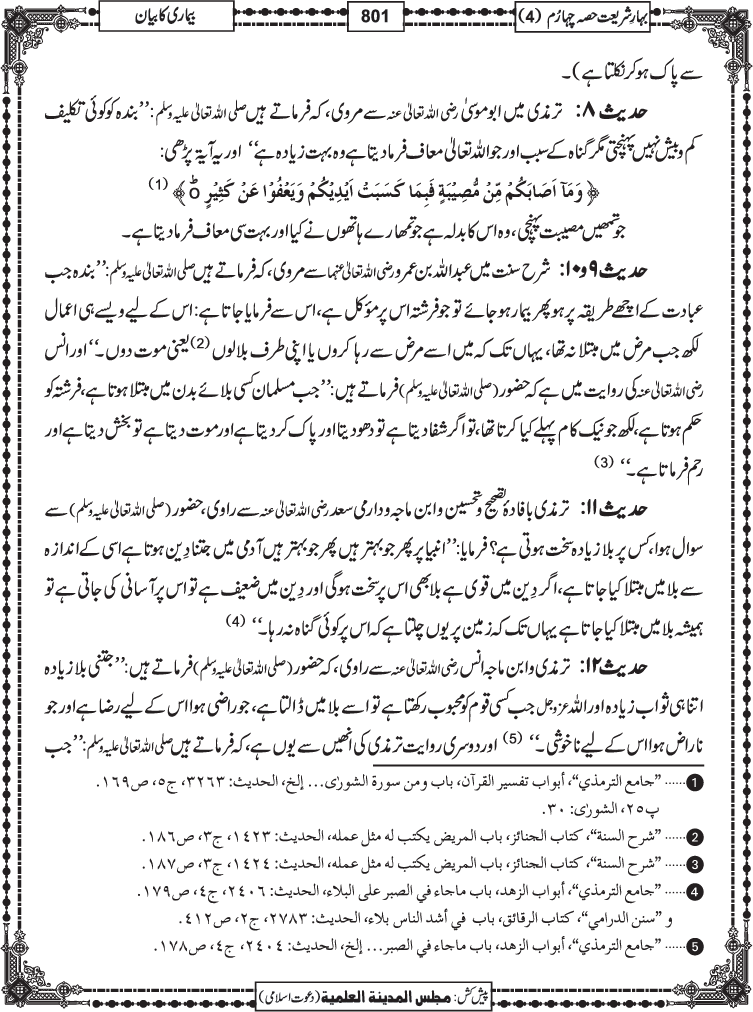 بہارِشریعت حصہ چہارُم (4)
801
بیماری کا بیان
سے پاک ہو کر نکلتا ہے)۔
حدیث ۸: ترمذی میں ابو موسیٰ رضی اللہ تعالٰی عنہ سے مروی، کہ فرماتے ہیں صلی اللہ تعالٰی علیہ وسلم: ’’بندہ کو کوئی تکلیف
کم و بیش نہیں پہنچتی مگر گناہ کے سبب اور جو اللہ تعالٰی معاف فرما دیتا ہے وہ بہت زیادہ ہے‘‘ اور یہ آیۃ پڑھی:
﴿ وَمَاۤ اَصَابَكُمْ مِّنْ مُّصِیْبَةٍ فَبِمَا كَسَبَتْ اَیْدِیْكُمْ وَیَعْفُوْا عَنْ كَثِیْرٍ ﴾ (1)
جو تمھیں مصیبت پہنچی، وہ اس کا بدلہ ہے جو تمھارے ہاتھوں نے کیا اور بہت سی معاف فرما دیتا ہے۔
حدیث ۹و۱۰: شرح سنت میں عبداللہ بن عمرو رضی اللہ تعالٰی عنہما سے مروی، کہ فرماتے ہیں صلی اللہ تعالٰی علیہ وسلم: ’’بندہ جب
عبادت کے اچھے طریقہ پر ہو پھر بیمار ہو جائے تو جو فرشتہ اس پر مؤکل ہے، اس سے فرمایا جاتا ہے: اس کے لیے ویسے ہی اعمال
لکھ جب مرض میں مبتلا نہ تھا، یہاں تک کہ میں اسے مرض سے رہا کروں یا اپنی طرف بلا لوں (2) یعنی موت دوں۔‘‘ اور انس
رضی اللہ تعالٰی عنہ کی روایت میں ہے کہ حضور (صلی اللہ تعالٰی علیہ وسلم) فرماتے ہیں: ’’جب مسلمان کسی بلائے بدن میں مبتلا ہوتا ہے، فرشتہ کو
حکم ہوتا ہے، لکھ جو نیک کام پہلے کیا کرتا تھا، تو اگر شفا دیتا ہے تو دھو دیتا اور پاک کر دیتا ہے اور موت دیتا ہے تو بخش دیتا ہے اور
رحم فرماتا ہے۔‘‘ (3)
حدیث ۱۱: ترمذی بافادۂ تصحیح و تحسین و ابن ماجہ و دارمی سعد رضی اللہ تعالٰی عنہ سے راوی، حضور (صلی اللہ تعالٰی علیہ وسلم) سے
سوال ہوا، کس پر بلا زیادہ سخت ہوتی ہے؟ فرمایا: ’’انبیا پر پھر جو بہتر ہیں پھر جو بہتر ہیں آدمی میں جتنا دِین ہوتا ہے اسی کے اندازہ
سے بلا میں مبتلا کیا جاتا ہے، اگر دِین میں قوی ہے بلا بھی اس پر سخت ہوگی اور دِین میں ضعیف ہے تو اس پر آسانی کی جاتی ہے تو
ہمیشہ بلا میں مبتلا کیا جاتا ہے یہاں تک کہ زمین پر یوں چلتا ہے کہ اس پر کوئی گناہ نہ رہا۔‘‘ (4)
حدیث ۱۲: ترمذی و ابن ماجہ انس رضی اللہ تعالٰی عنہ سے راوی، کہ حضور (صلی اللہ تعالٰی علیہ وسلم) فرماتے ہیں: ’’جتنی بلا زیادہ
اتنا ہی ثواب زیادہ اور اللہ عزوجل جب کسی قوم کو محبوب رکھتا ہے تو اسے بلا میں ڈالتا ہے، جو راضی ہوا اس کے لیے رضا ہے اور جو
ناراض ہوا اس کے لیے ناخوشی۔‘‘ (5) اور دوسری روایت ترمذی کی انھیں سے یوں ہے، کہ فرماتے ہیں صلی اللہ تعالٰی علیہ وسلم: ’’جب
1 ...... ”جامع الترمذي“، أبواب تفسير القرآن، باب ومن سورة الشورٰی... إلخ، الحديث: ۳۲۶۳، ج۵، ص۱۶۹.
پ۲۵، الشورٰی: ۳۰.
2 ...... ”شرح السنة“، كتاب الجنائز، باب المريض يكتب له مثل عمله، الحديث: ۱۴۲۳، ج۳، ص۱۸۶.
3 ...... ”شرح السنة“، كتاب الجنائز، باب المريض يكتب له مثل عمله، الحديث: ۱۴۲۴، ج۳، ص۱۸۷.
4 ...... ”جامع الترمذي“، أبواب الزهد، باب ماجاء في الصبر على البلاء، الحديث: ۲۴۰۶، ج۴، ص۱۷۹.
و ”سنن الدارمي“، كتاب الرقائق، باب في أشد الناس بلاء، الحديث: ۲۷۸۳، ج۲، ص۴۱۲.
5 ...... ”جامع الترمذي“، أبواب الزهد، باب ماجاء في الصبر... إلخ، الحديث: ۲۴۰۴، ج۴، ص۱۷۸.
پیش کش: مجلس المدينة العلمية (دعوت اسلامی)